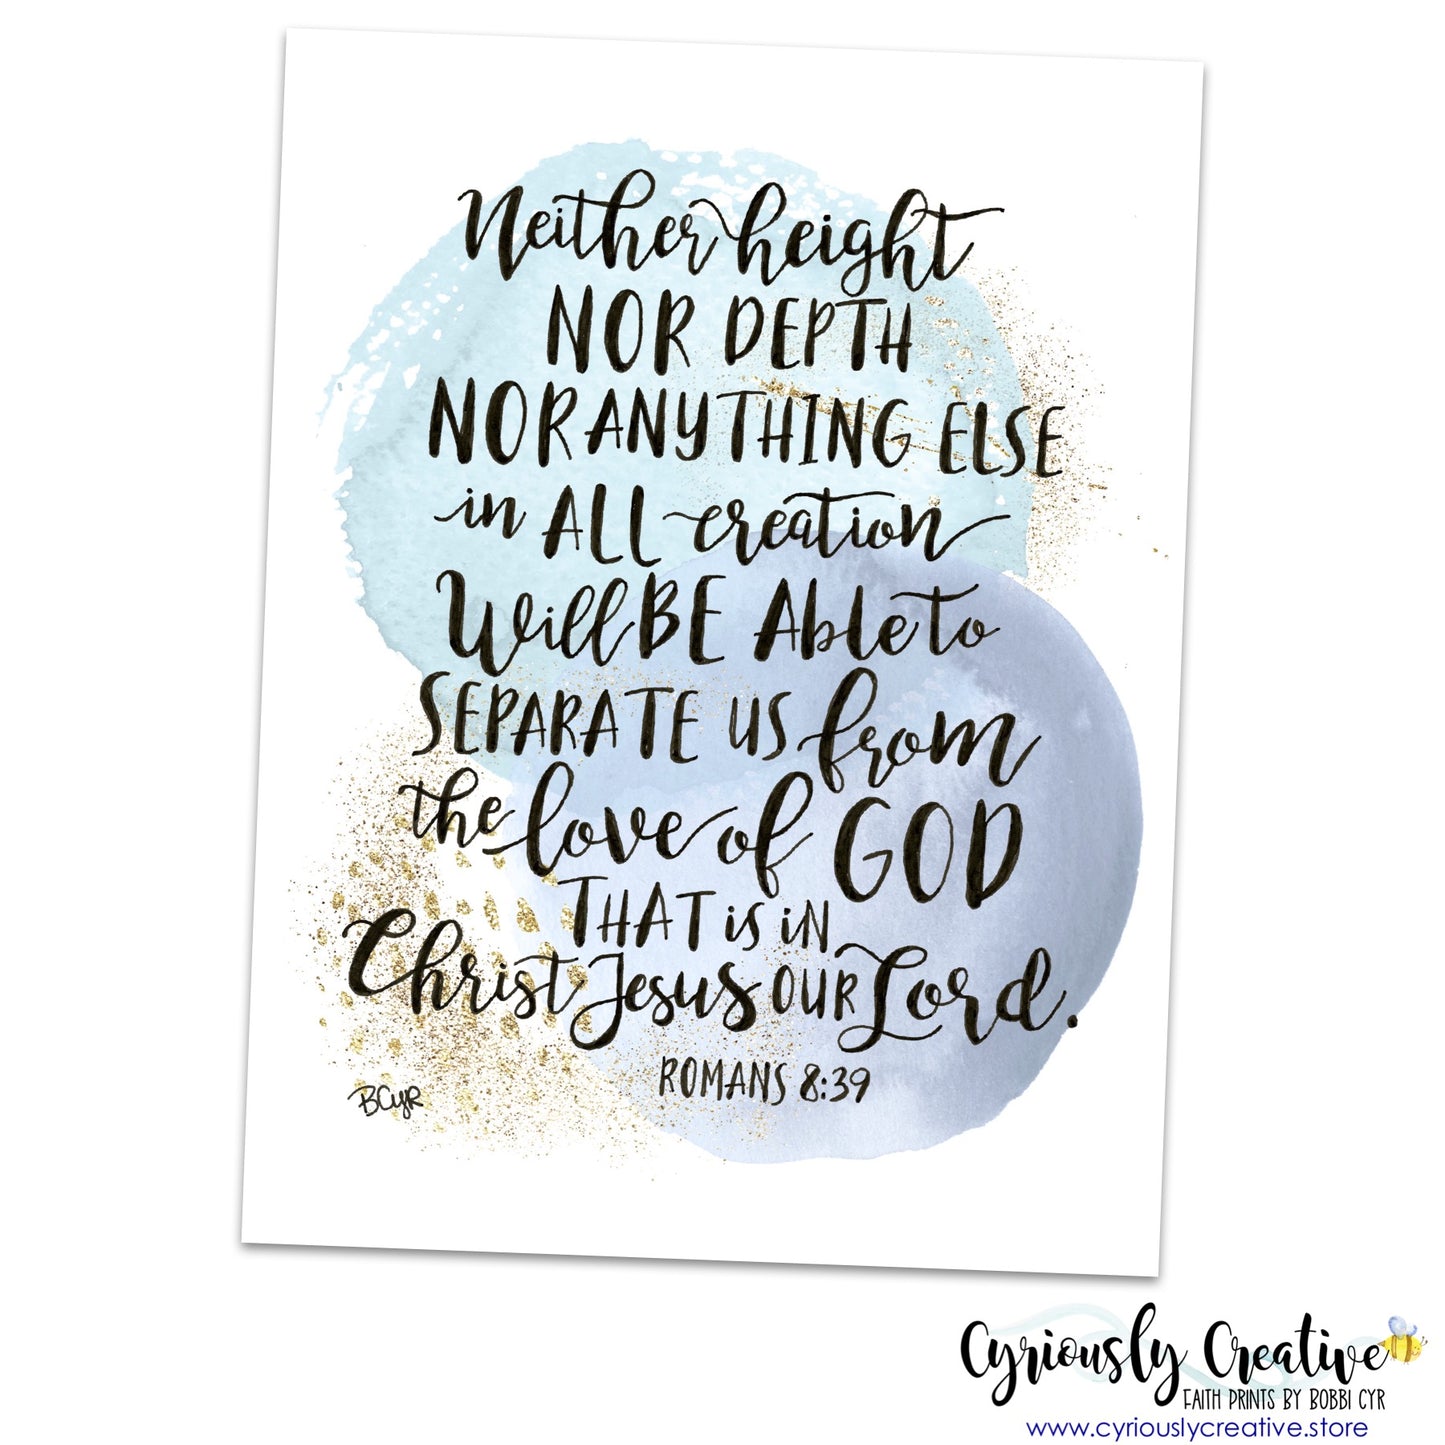 Neither height
NOR DEPTH
NOR ANYTHING ELSE
in ALL creation
Will BE Able to
SEPARATE US from
the love of GOD
THAT is iN
Christ Jesus OUR Lord.
ROMANS 8:39
BCyR
Cyriously Creative
FAITH PRINTS BY BOBBI CYR
www.cyriouslycreative.store